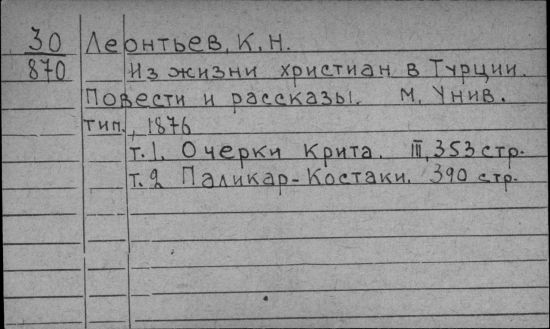 30 Леонтьев, К. Н.
870 Из жизни христиан в Турции.
Повести и рассказы. М. Унив.
тип., 1876
т. 1. Очерки Крита. III, 353 стр.
т. 2 Паликар-Костаки. 390 стр.